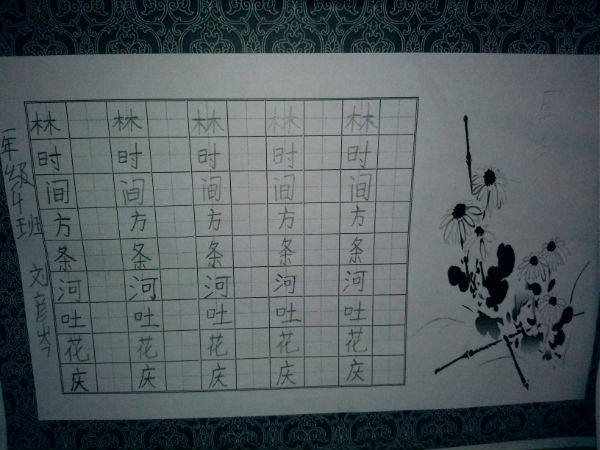 林 林 林 林 林
时 时 时 时 时
间 间 间 间 间
方 方 方 方 方
条 条 条 条 条
河 河 河 河 河
吐 吐 吐 吐 吐
花 花 花 花 花
庆 庆 庆 庆 庆
一年级4班 文彦